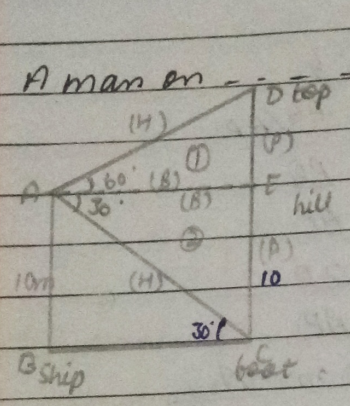 A man on - - - -
D top
(H)
① (P)
60°
A (B) E
30° (B) hill
② (P)
10m (H) 10
30°
B C
ship boat